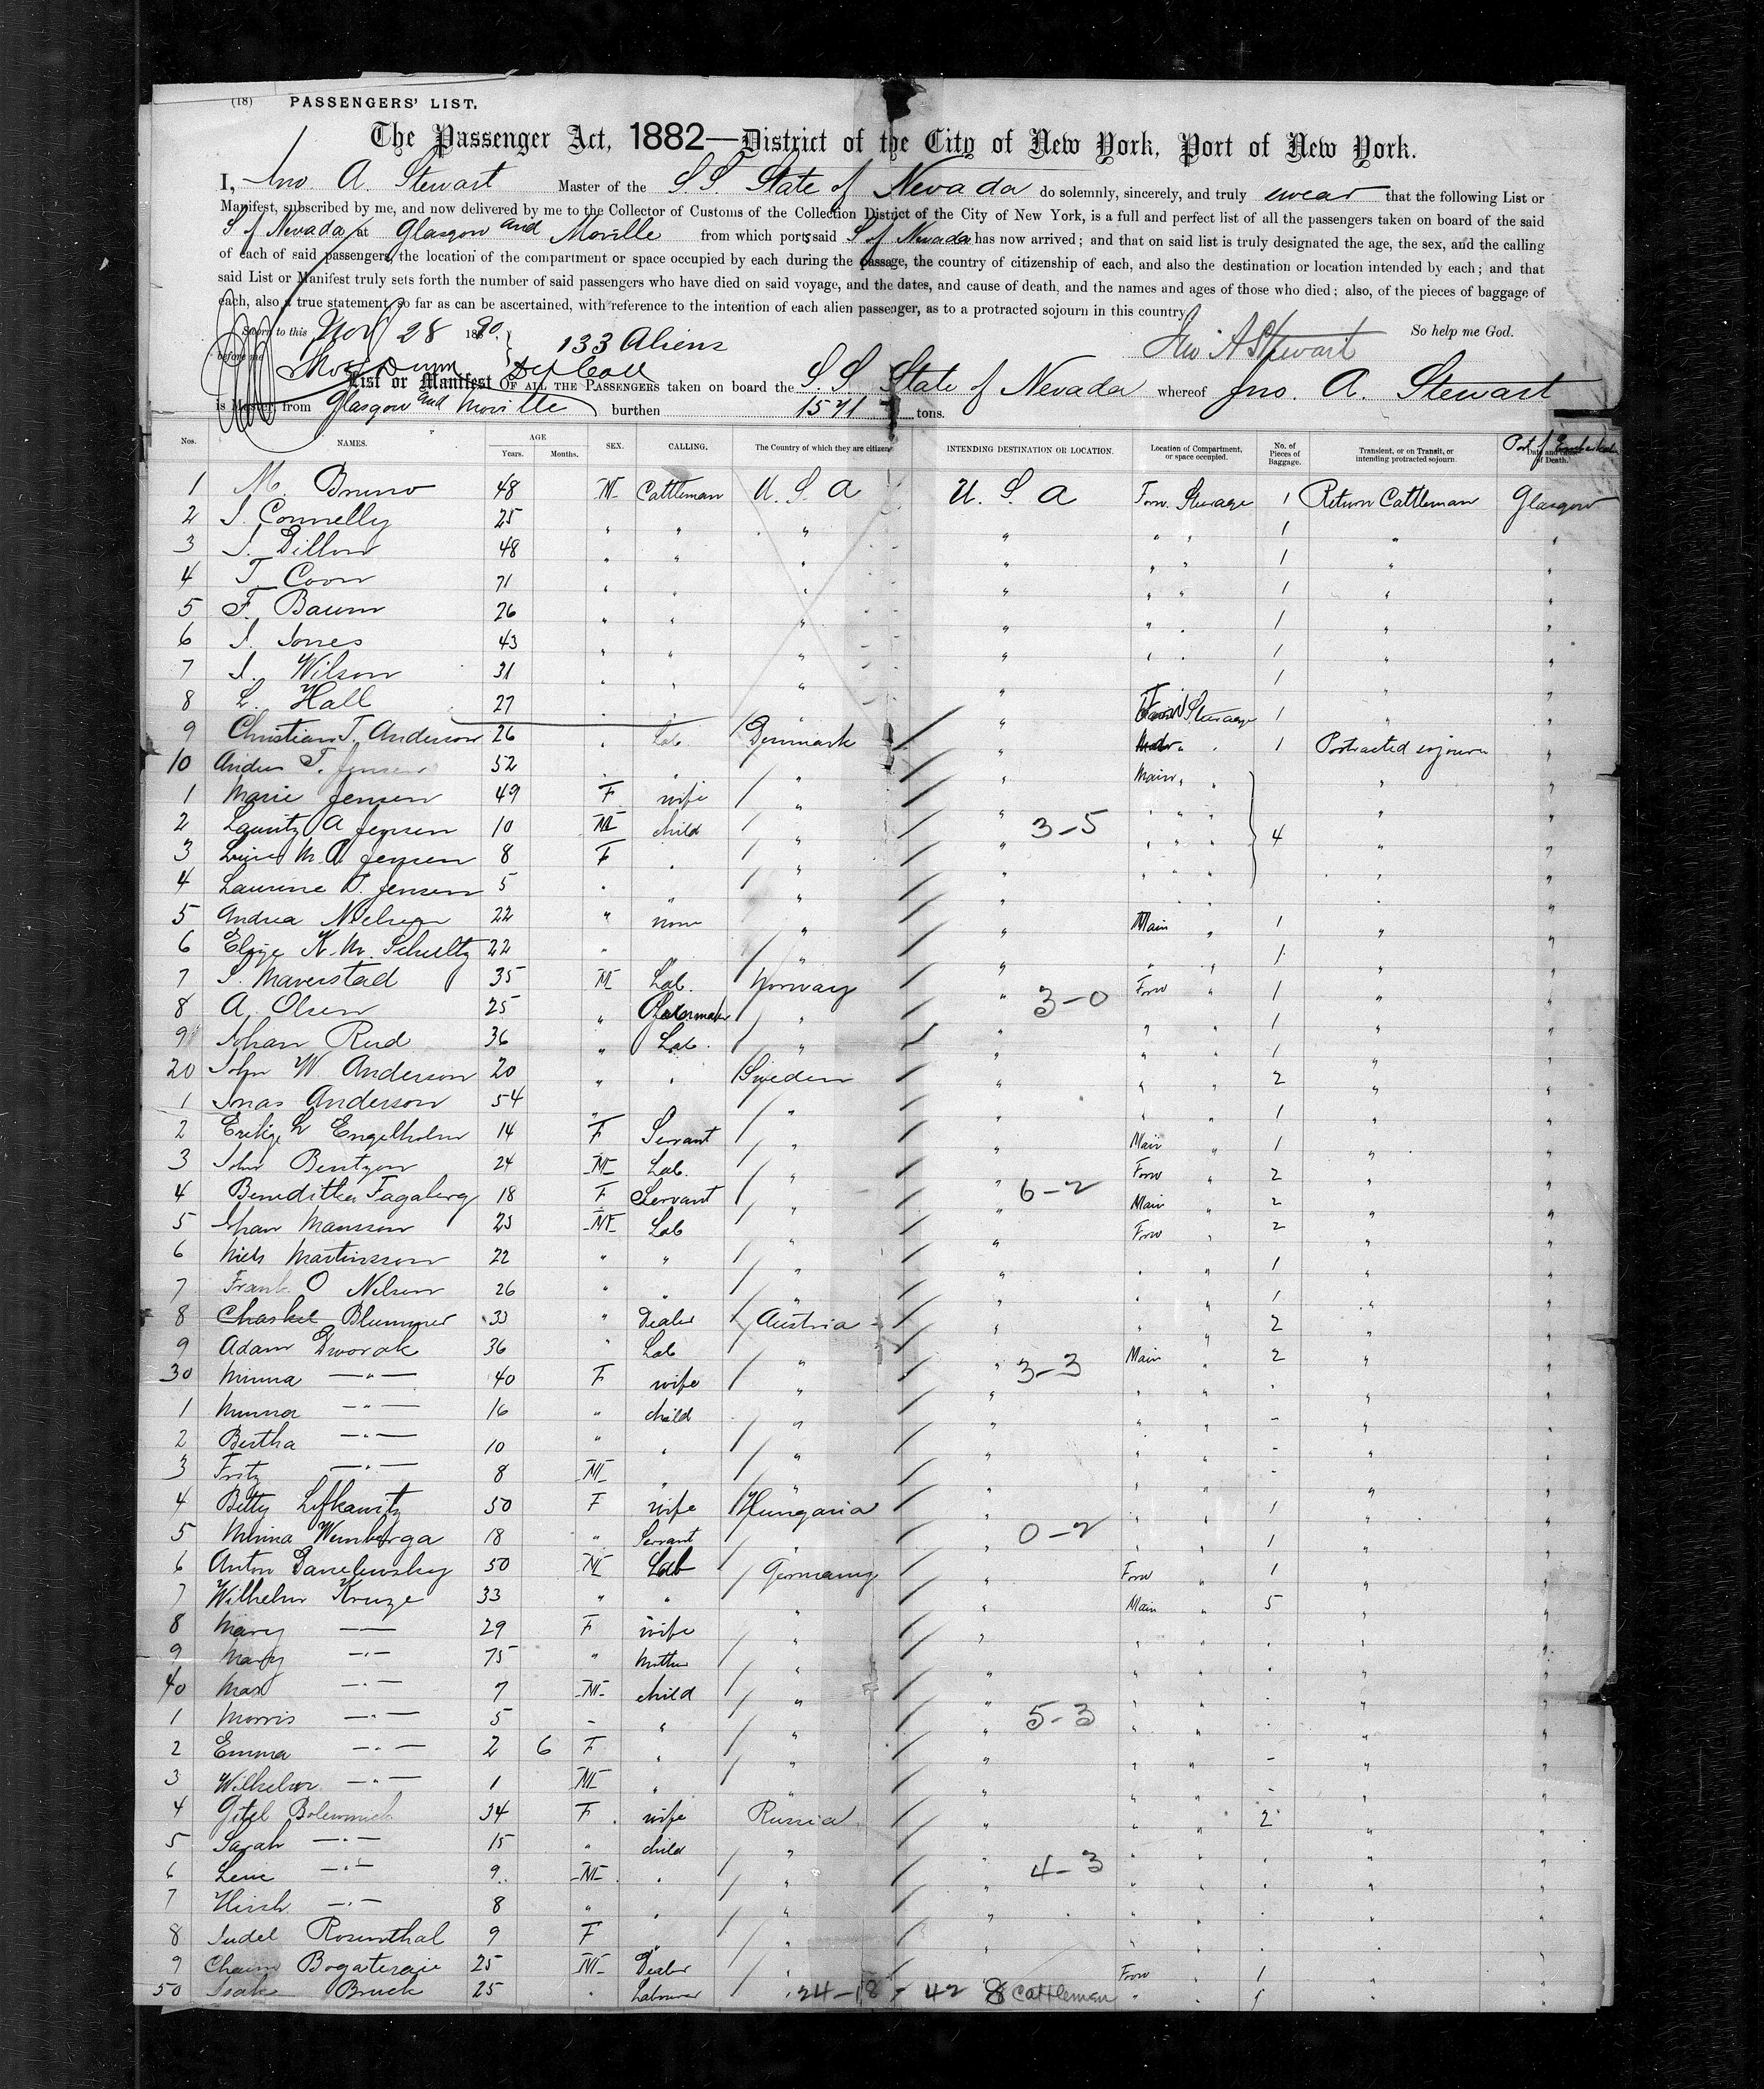 (18) PASSENGERS' LIST.
The Passenger Act, 1882—District of the City of New York, Port of New York.
I, Jno. A. Stewart Master of the S.S. State of Nevada do solemnly, sincerely, and truly swear that the following List or
Manifest, subscribed by me, and now delivered by me to the Collector of Customs of the Collection District of the City of New York, is a full and perfect list of all the passengers taken on board of the said
S of Nevada at Glasgow and Moville from which ports said S of Nevada has now arrived; and that on said list is truly designated the age, the sex, and the calling
of each of said passengers, the location of the compartment or space occupied by each during the passage, the country of citizenship of each, and also the destination or location intended by each; and that
said List or Manifest truly sets forth the number of said passengers who have died on said voyage, and the dates, and cause of death, and the names and ages of those who died; also, of the pieces of baggage of
each, also a true statement, so far as can be ascertained, with reference to the intention of each alien passenger, as to a protracted sojourn in this country.
Sworn to this Nov 28 1890. 133 Aliens Jno A Stewart So help me God.
before me
List or Manifest OF ALL THE PASSENGERS taken on board the S.S. State of Nevada whereof Jno. A. Stewart
is Master, from Glasgow and Moville burthen 1571 tons.
Nos. NAMES. AGE Years. Months. SEX. CALLING. The Country of which they are citizens INTENDING DESTINATION OR LOCATION. Location of Compartment, or space occupied. No. of Pieces of Baggage. Transient, or on Transit, or intending protracted sojourn. Port of Date and Cause of Death.
1 M. Bruno 48 M Cattleman U. S. A U. S. A Forw. Steerage 1 Return Cattleman Glasgow
2 J. Connelly 25 " " " " " " 1 " "
3 J. Dillon 48 " " " " " " 1 " "
4 T. Coon 71 " " " " " " 1 " "
5 F. Baum 26 " " " " " " 1 " "
6 J. Jones 43 " " " " " " 1 " "
7 J. Wilson 31 " " " " 1 " "
8 L. Hall 27 " " " " Steerage 1 " "
9 Christian J. Anderson 26 " Lab. Denmark " " 1 Protracted sojourn "
10 Anders T. Jensen 52 " " " " Main " " "
1 Marie Jensen 49 F wife " " " " " "
2 Lauritz A Jensen 10 M child " " 3-5 " " 4 " "
3 M. A. Jensen 8 F " " " " " " "
4 Laurine T. Jensen 5 " " " " " " " "
5 Andrea Nielsen 22 " none " " Main " 1 " "
6 K. M. Schultz 22 " " " " " " 1 " "
7 S. Maverstad 35 M Lab. Norway " 3-0 Forw " 1 " "
8 A. Olsen 25 " " " " " 1 " "
9 Johan Rud 36 " Lab. " " " " 1 " "
20 John W. Anderson 20 " " Sweden " " " 2 " "
1 Jonas Anderson 54 " " " " " 1 " "
2 L Engelholm 14 F Servant " " Main " 1 " "
3 John Bentzon 24 M Lab. " " Forw " 2 " "
4 Beneditha Fagaberg 18 F Servant " " 6-2 Main " 2 " "
5 Johan Mansson 25 M Lab " " Forw " 2 " "
6 Niels Martinsson 22 " " " " " " 1 " "
7 Frank O Nelson 26 " " " " " " 1 " "
8 Chaskel Blummer 33 " Dealer Austria " " " 2 " "
9 Adam Dworak 36 " Lab " " 3-3 Main " 2 " "
30 Minna —"— 40 F wife " " " " " " "
1 Minna —"— 16 " child " " " " - " "
2 Bertha —"— 10 " " " " " " - " "
3 Fritz —"— 8 M " " " " " - " "
4 Betty Lefkawitz 50 F wife Hungaria " " " 1 " "
5 Minna Wemberga 18 " Servant " " 0-2 " " 1 " "
6 Anton Danelewsky 50 M Lab Germany " Forw " 1 " "
7 Wilhelm Kruze 33 " " " " Main " 5 " "
8 Mary —"— 29 F wife " " " " " " "
9 Mary —"— 75 " Mother " " " " " " "
40 Max —"— 7 M child " " " " " " "
1 Morris —"— 5 - " " " 5-3 " " " " "
2 Emma —"— 2 6 F " " " " " - " "
3 Wilhelm —"— 1 M " " " " " - " "
4 Gitel 34 F wife Russia " " " 2 " "
5 Sarah —"— 15 " child " " " " " " "
6 —"— 9 M " " " 4-3 " " " " "
7 Hirsh —"— 8 " " " " " " " " "
8 Judel Rosenthal 9 F " " " " " " "
9 Chaim 25 M Dealer " Forw " 1 " "
50 Isak Bruck 25 " Labourer 24-18 - 42 8 Cattleman " " 1 " "